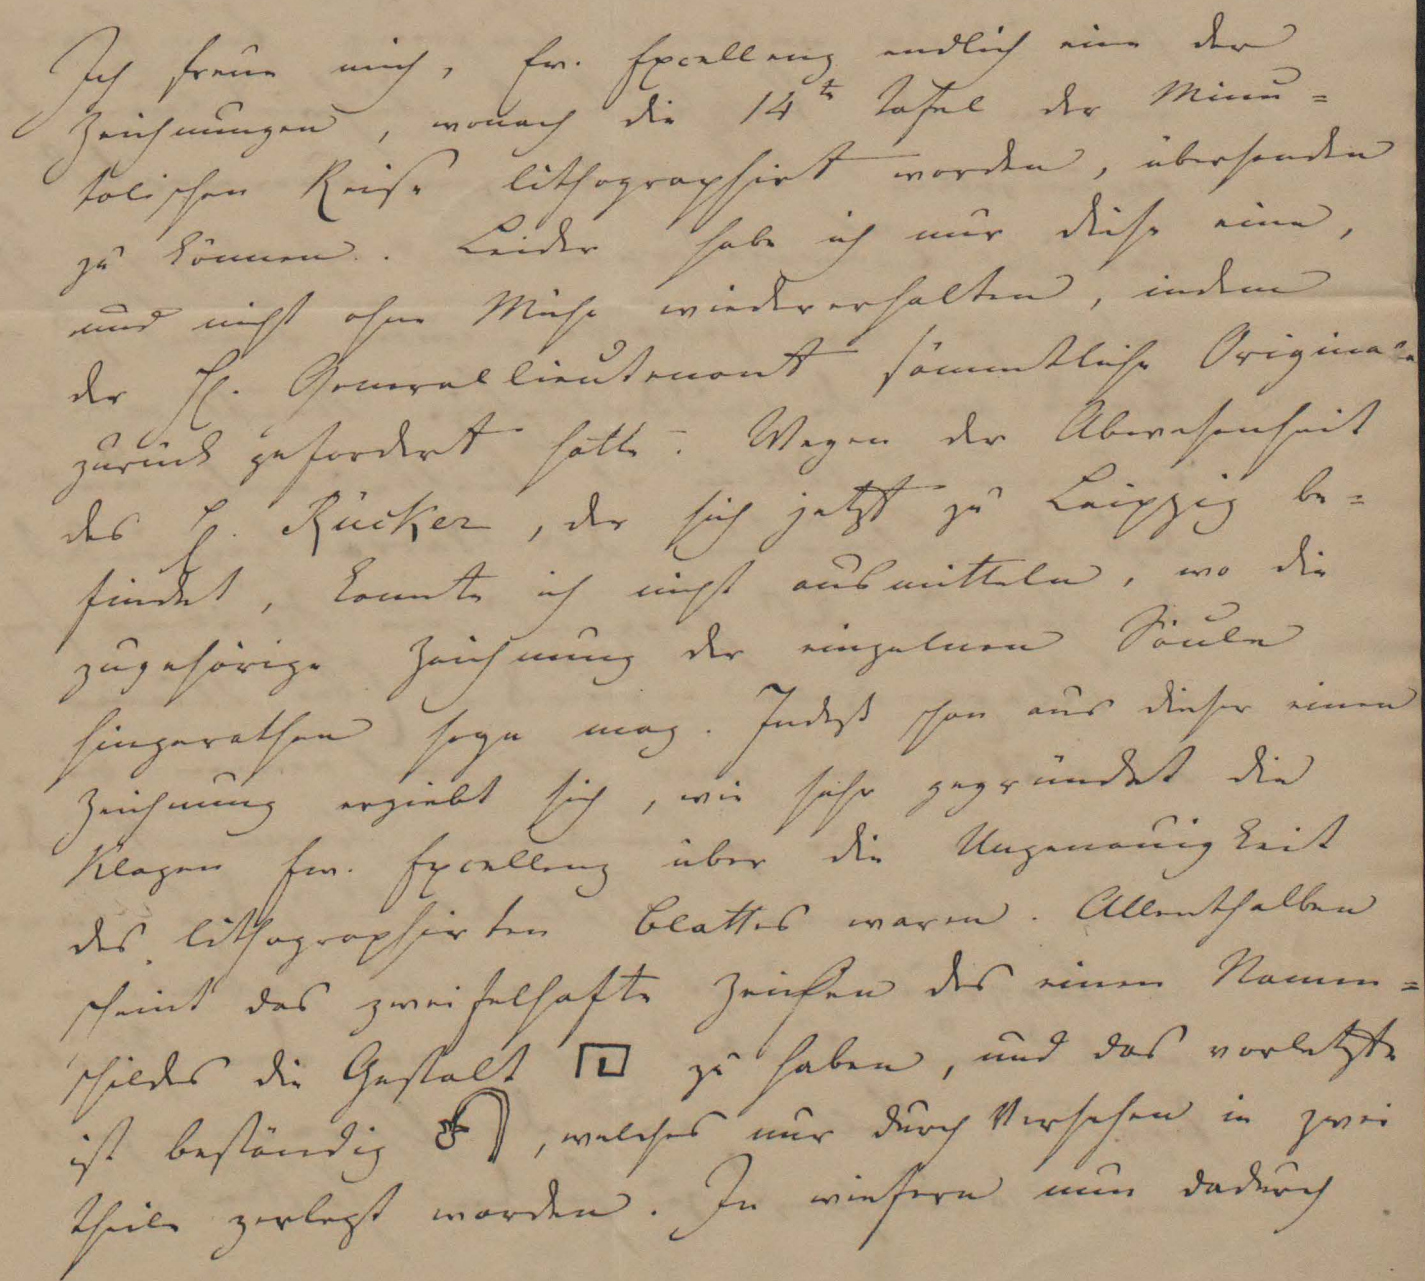 Ich freue mich, Ew. Excellenz endlich eine der
Zeichnungen, wonach die 14te Tafel der Minu=
tolischen Reise lithographirt worden, übersenden
zu können. Leider habe ich nur diese eine,
und nicht ohne Mühe wiedererhalten, indem
der H. Generallieutenant sämmtliche Originale
zurück gefordert hatte. Wegen der Abwesenheit
des H. Rücker, der sich jetzt zu Leipzig be=
findet, konnte ich nicht ausmitteln, wo die
zugehörige Zeichnung der einzelnen Säule
hingerathen seyn mag. Indeß schon aus dieser einen
Zeichnung ergiebt sich, wie sehr gegründet die
Klagen Ew. Excellenz über die Ungenauigkeit
des lithographirten Blattes waren. Allenthalben
scheint das zweifelhafte Zeichen des einen Namen=
schildes die Gestalt zu haben, und das vorletzte
ist beständig , welches nur durch Versehen in zwei
Theile zerlegt worden. In wiefern nun dadurch